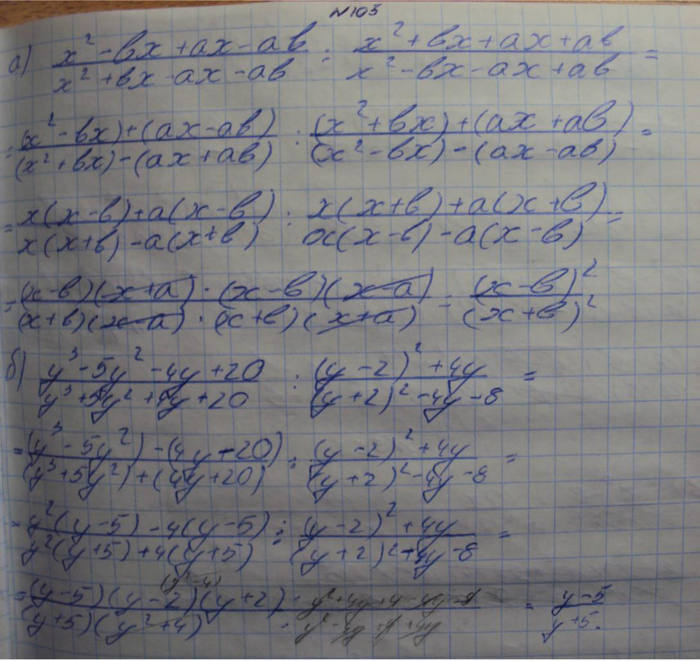 N103
а) (x² - bx + ax - ab)/(x² + bx - ax - ab) : (x² + bx + ax + ab)/(x² - bx - ax + ab) =
= ((x² - bx) + (ax - ab))/((x² + bx) - (ax + ab)) : ((x² + bx) + (ax + ab))/((x² - bx) - (ax - ab)) =
= (x(x - b) + a(x - b))/(x(x + b) - a(x + b)) : (x(x + b) + a(x + b))/(x(x - b) - a(x - b)) =
= ((x - b)(x + a) · (x - b)(x - a))/((x + b)(x - a) · (x + b)(x + a)) = (x - b)²/(x + b)²
б) (y³ - 5y² - 4y + 20)/(y³ + 5y² + 4y + 20) : ((y - 2)² + 4y)/((y + 2)² - 4y - 8) =
= ((y³ - 5y²) - (4y - 20))/((y³ + 5y²) + (4y + 20)) : ((y - 2)² + 4y)/((y + 2)² - 4y - 8) =
= (y²(y - 5) - 4(y - 5))/(y²(y + 5) + 4(y + 5)) : ((y - 2)² + 4y)/((y + 2)² - 4y - 8) =
(y² - 4)
= ((y - 5)(y - 2)(y + 2))/((y + 5)(y² + 4)) = (y - 5)/(y + 5).